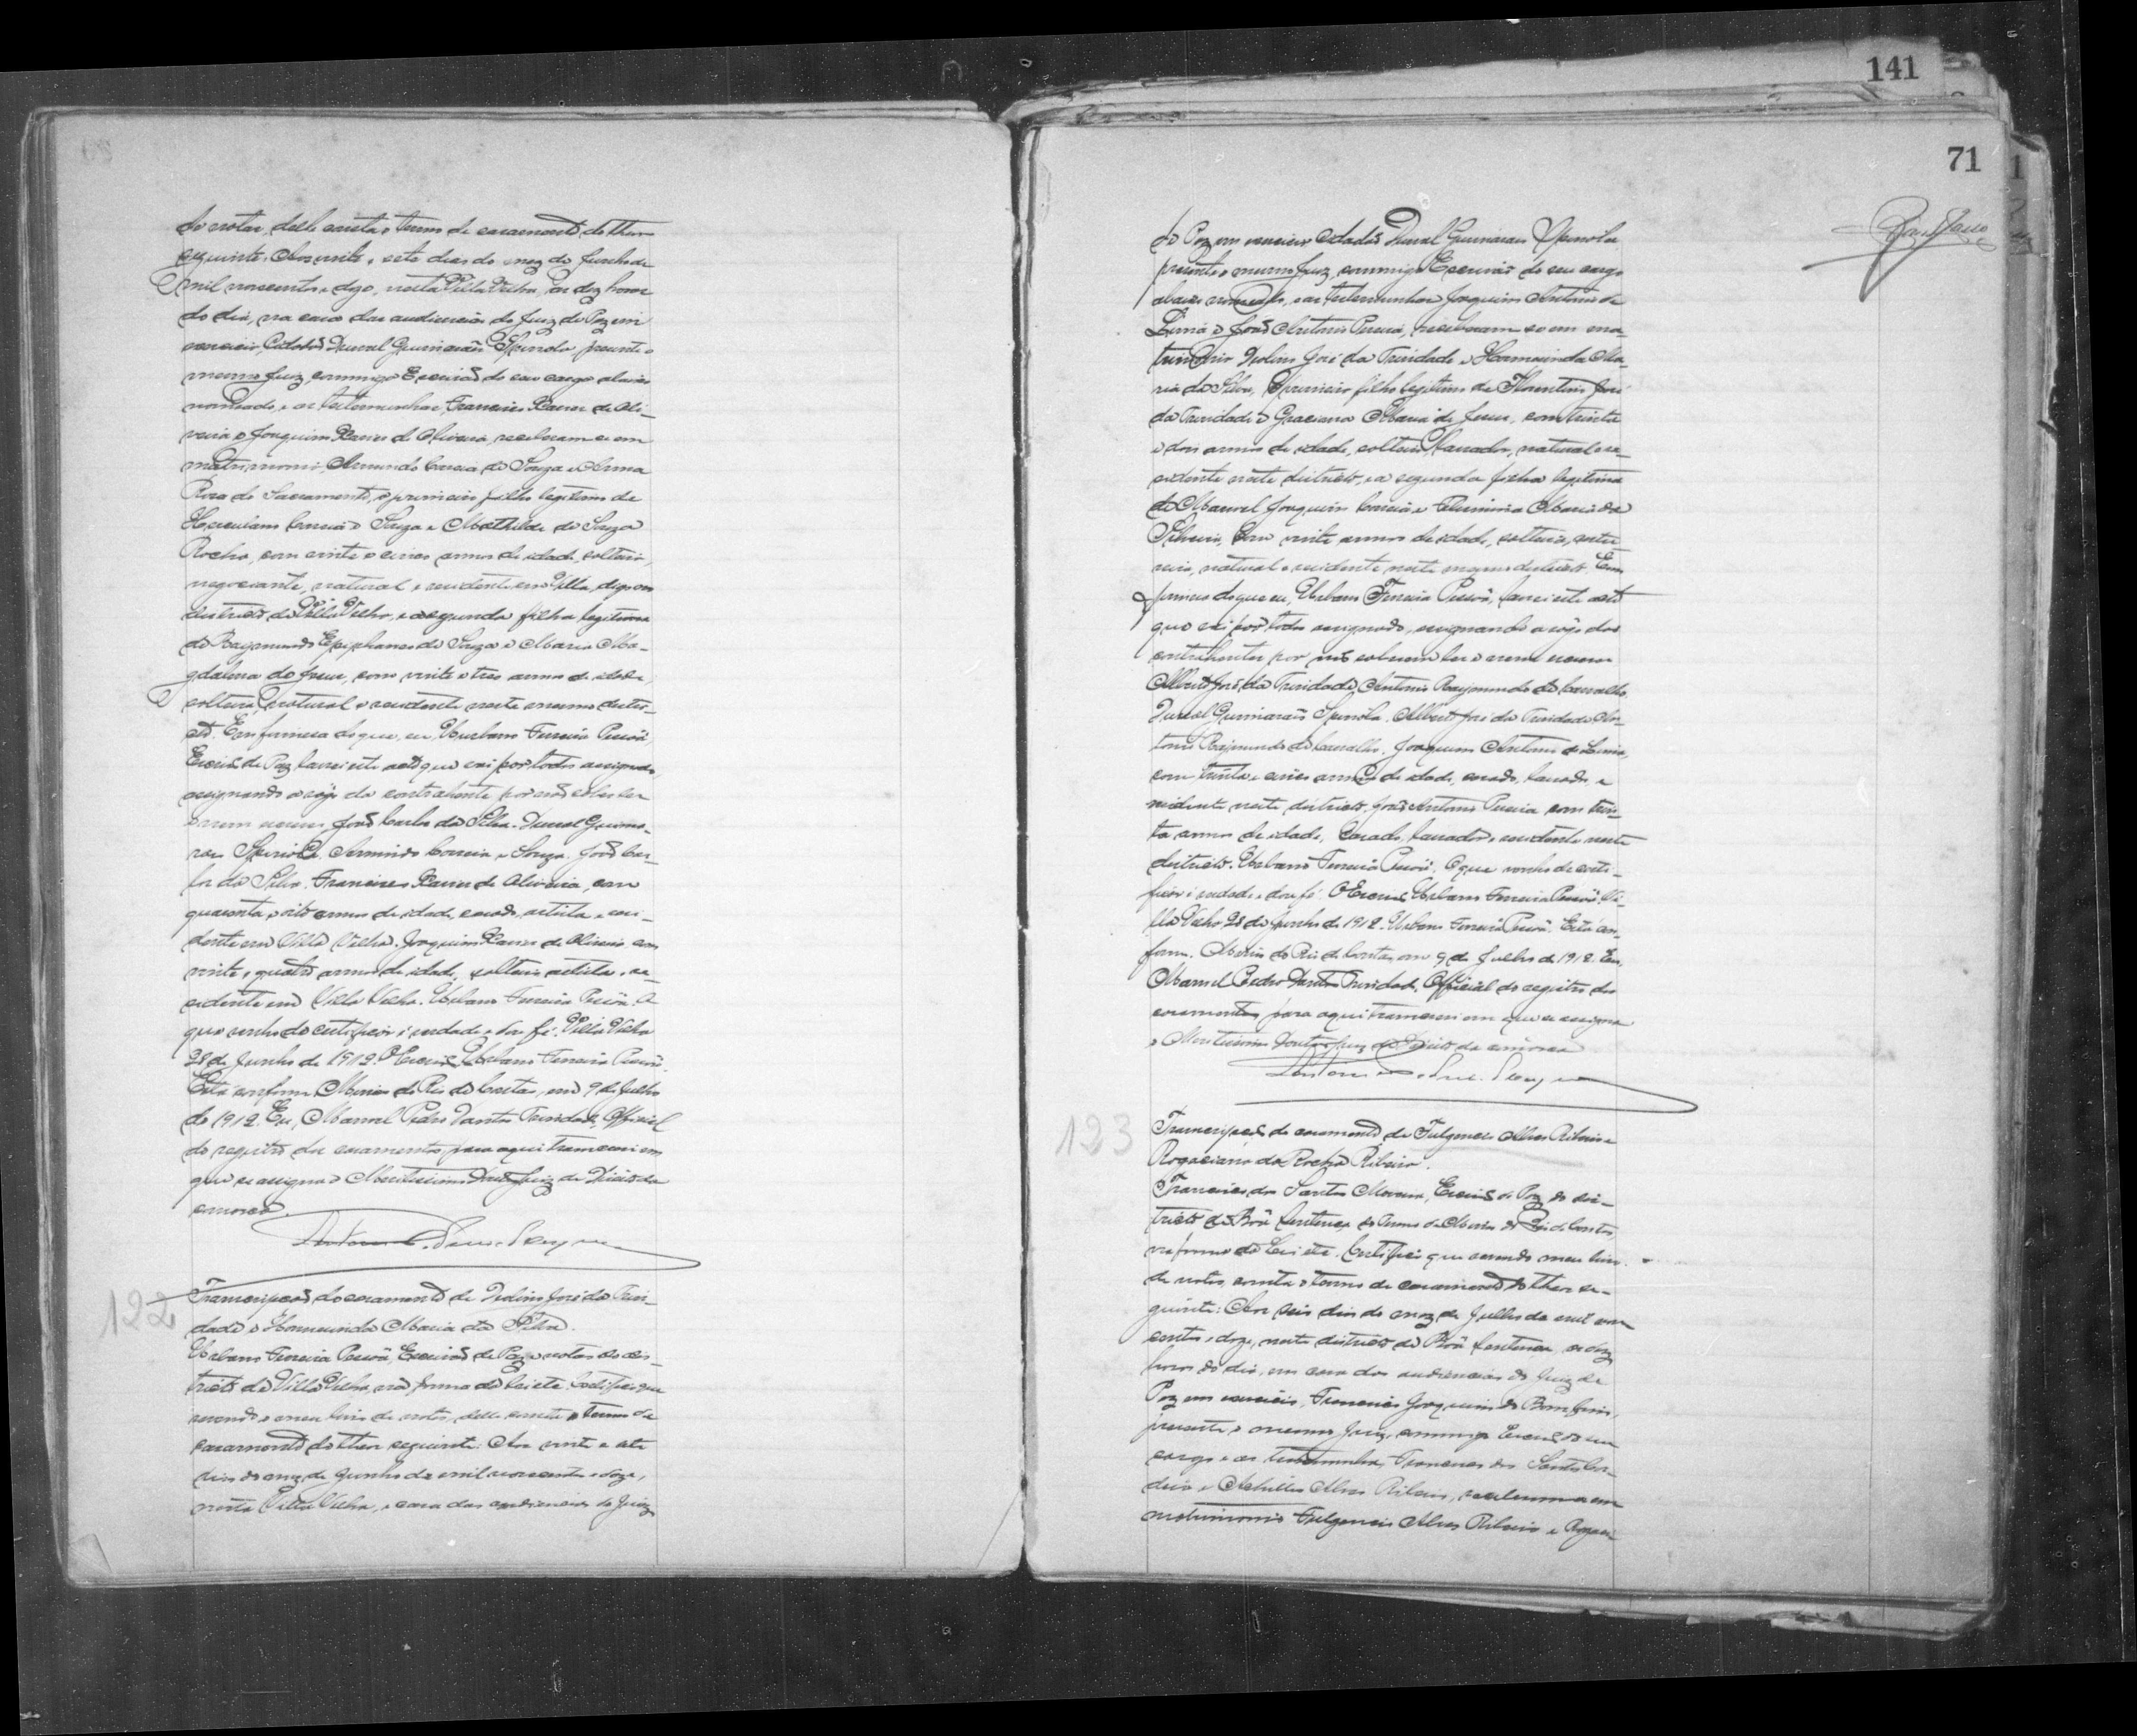 de notas, delle consta o termo de casamento do theor
seguinte: Aos vinte e sete dias do mez de Junho de
mil novecentos e doze, nesta Villa Velha, as dez horas
do dia, na casa das audiencias do Juiz de Paz em
exercicio, Cidadão Durval Guimarães Spinola presente o
mesmo Juiz commigo Escrivão do seu cargo abaixo
nomeado, e as testemunhas, Francisco Xavier de Oli-
veira e Joaquim Xavier de Oliveira, receberam-se em
matrimonio, Armindo Correia de Souza e Anna
Rosa do Sacramento, o primeiro filho legitimo de
Herculano Correia de Souza e Mathilde de Souza
Rocha, com vinte e cinco annos de idade, solteiro,
negociante, natural e residente em Villa, digo em
districto de Villa Velha, e a segunda filha legitima
de Raymundo Epiphaneo de Souza e Maria Ma-
gdalena de Jesus, com vinte e tres annos de idade,
solteira, natural e residente neste mesmo distric-
to. Em firmeza do que, eu, Urbano Ferreira Pessôa,
Escrivão de Paz lavrei este acto que vai por todos assignado,
assignando a rogo da contrahente por não saber ler
e nem escrever João Carlos da Silva. Durval Guima-
rães Spinola. Armindo Correia e Souza. João Car-
los da Silva. Francisco Xavier de Oliveira, com
quarenta e oito annos de idade, casado, artista e resi-
dente em Villa Velha. Joaquim Xavier de Oliveira com
vinte e quatro annos de idade, solteiro, artista e re-
sidente em Villa Velha. Urbano Ferreira Pessôa. O
que venho de certificar é verdade e dou fé. Villa Velha
28 de Junho de 1912. O Escrivão Urbano Ferreira Pessôa.
Está conforme. Minas do Rio de Contas, em 9 de Julho
de 1912. Eu, Manoel Pedro Dantas Trindade, Official
do registro dos casamentos para aqui transcrevi em
que se assigna o Meritissimo Doutor Juiz de Direito da
comarca.
122
Transcripção do casamento de Isolino José da Trin-
dade e Hermosinda Maria da Silva.
Urbano Ferreira Pessôa, Escrivão de Paz e notas do dis-
tricto de Villa Velha, na forma da lei etc. Certifico que
revendo o meu livro de notas, delle consta o termo de
casamento do theor seguinte: Aos vinte e sete
dias do mez de Junho de mil novecentos e doze,
nesta Villa Velha, e casa das audiencias do Juiz
141
71
de Paz em exercicio Cidadão Durval Guimarães Spinola
presente o mesmo Juiz, commigo Escrivão do seu cargo
abaixo nomeado, e as testemunhas Joaquim Antonio de
Lima e João Antonio Pereira, receberam-se em ma-
trimonio Isolino José da Trindade e Hermosinda Ma-
ria da Silva, o primeiro filho legitimo de Florentino José
da Trindade e Graciana Maria de Jesus, com trinta
e dois annos de idade, solteiro, lavrador, natural e re-
sidente neste districto, e a segunda filha legitima
de Manoel Joaquim Correia e Maria da
Silveira, com vinte annos de idade, solteira,
natural e residente neste mesmo districto. Em
firmeza do que eu, Urbano Ferreira Pessôa, lavrei este acto
que vai por todos assignado, assignando a rogo dos
contrahentes por não saberem ler e nem escrever
Alberto José da Trindade, Antonio Raymundo de Carvalho.
Durval Guimarães Spinola. Alberto José da Trindade. An-
tonio Raymundo de Carvalho. Joaquim Antonio de Lima,
com trinta e cinco annos de idade, casado, lavrador, e
residente neste districto. João Antonio Pereira com trin-
ta annos de idade, casado, lavrador, residente neste
districto. Urbano Ferreira Pessôa. O que venho de certi-
ficar é verdade e dou fé. O Escrivão Urbano Ferreira Pessôa. Vi-
lla Velha, 28 de Junho de 1912. Urbano Ferreira Pessôa. Está con-
forme. Minas do Rio de Contas, em 9 de Julho de 1912. Eu,
Manoel Pedro Dantas Trindade, Official do registro dos
casamentos para aqui transcrevi em que se assigna
o Meritissimo Doutor Juiz de Direito da comarca
123
Transcripção do casamento de Fulgencio Alves Ribeiro e
Rogaciana da Rocha Ribeiro.
Francisco dos Santos Moreira, Escrivão de Paz do dis-
tricto da Bôa Sentença do Termo de Minas do Rio de Contas
na forma da Lei etc. Certifico que revendo meu livro
de notas, consta o termo de casamento do theor se-
guinte: Aos seis dias do mez de Julho de mil nove
centos e doze, neste districto da Bôa Sentença, as doze
horas do dia, em casa das audiencias do Juiz de
Paz em exercicio, Francisco Joaquim do Bomfim,
presente o mesmo Juiz, commigo Escrivão do seu
cargo e as testemunhas, Francisco dos Santos Cor-
deiro e Achilles Alves Ribeiro, receberam-se em
matrimonio Fulgencio Alves Ribeiro e Rogaci-